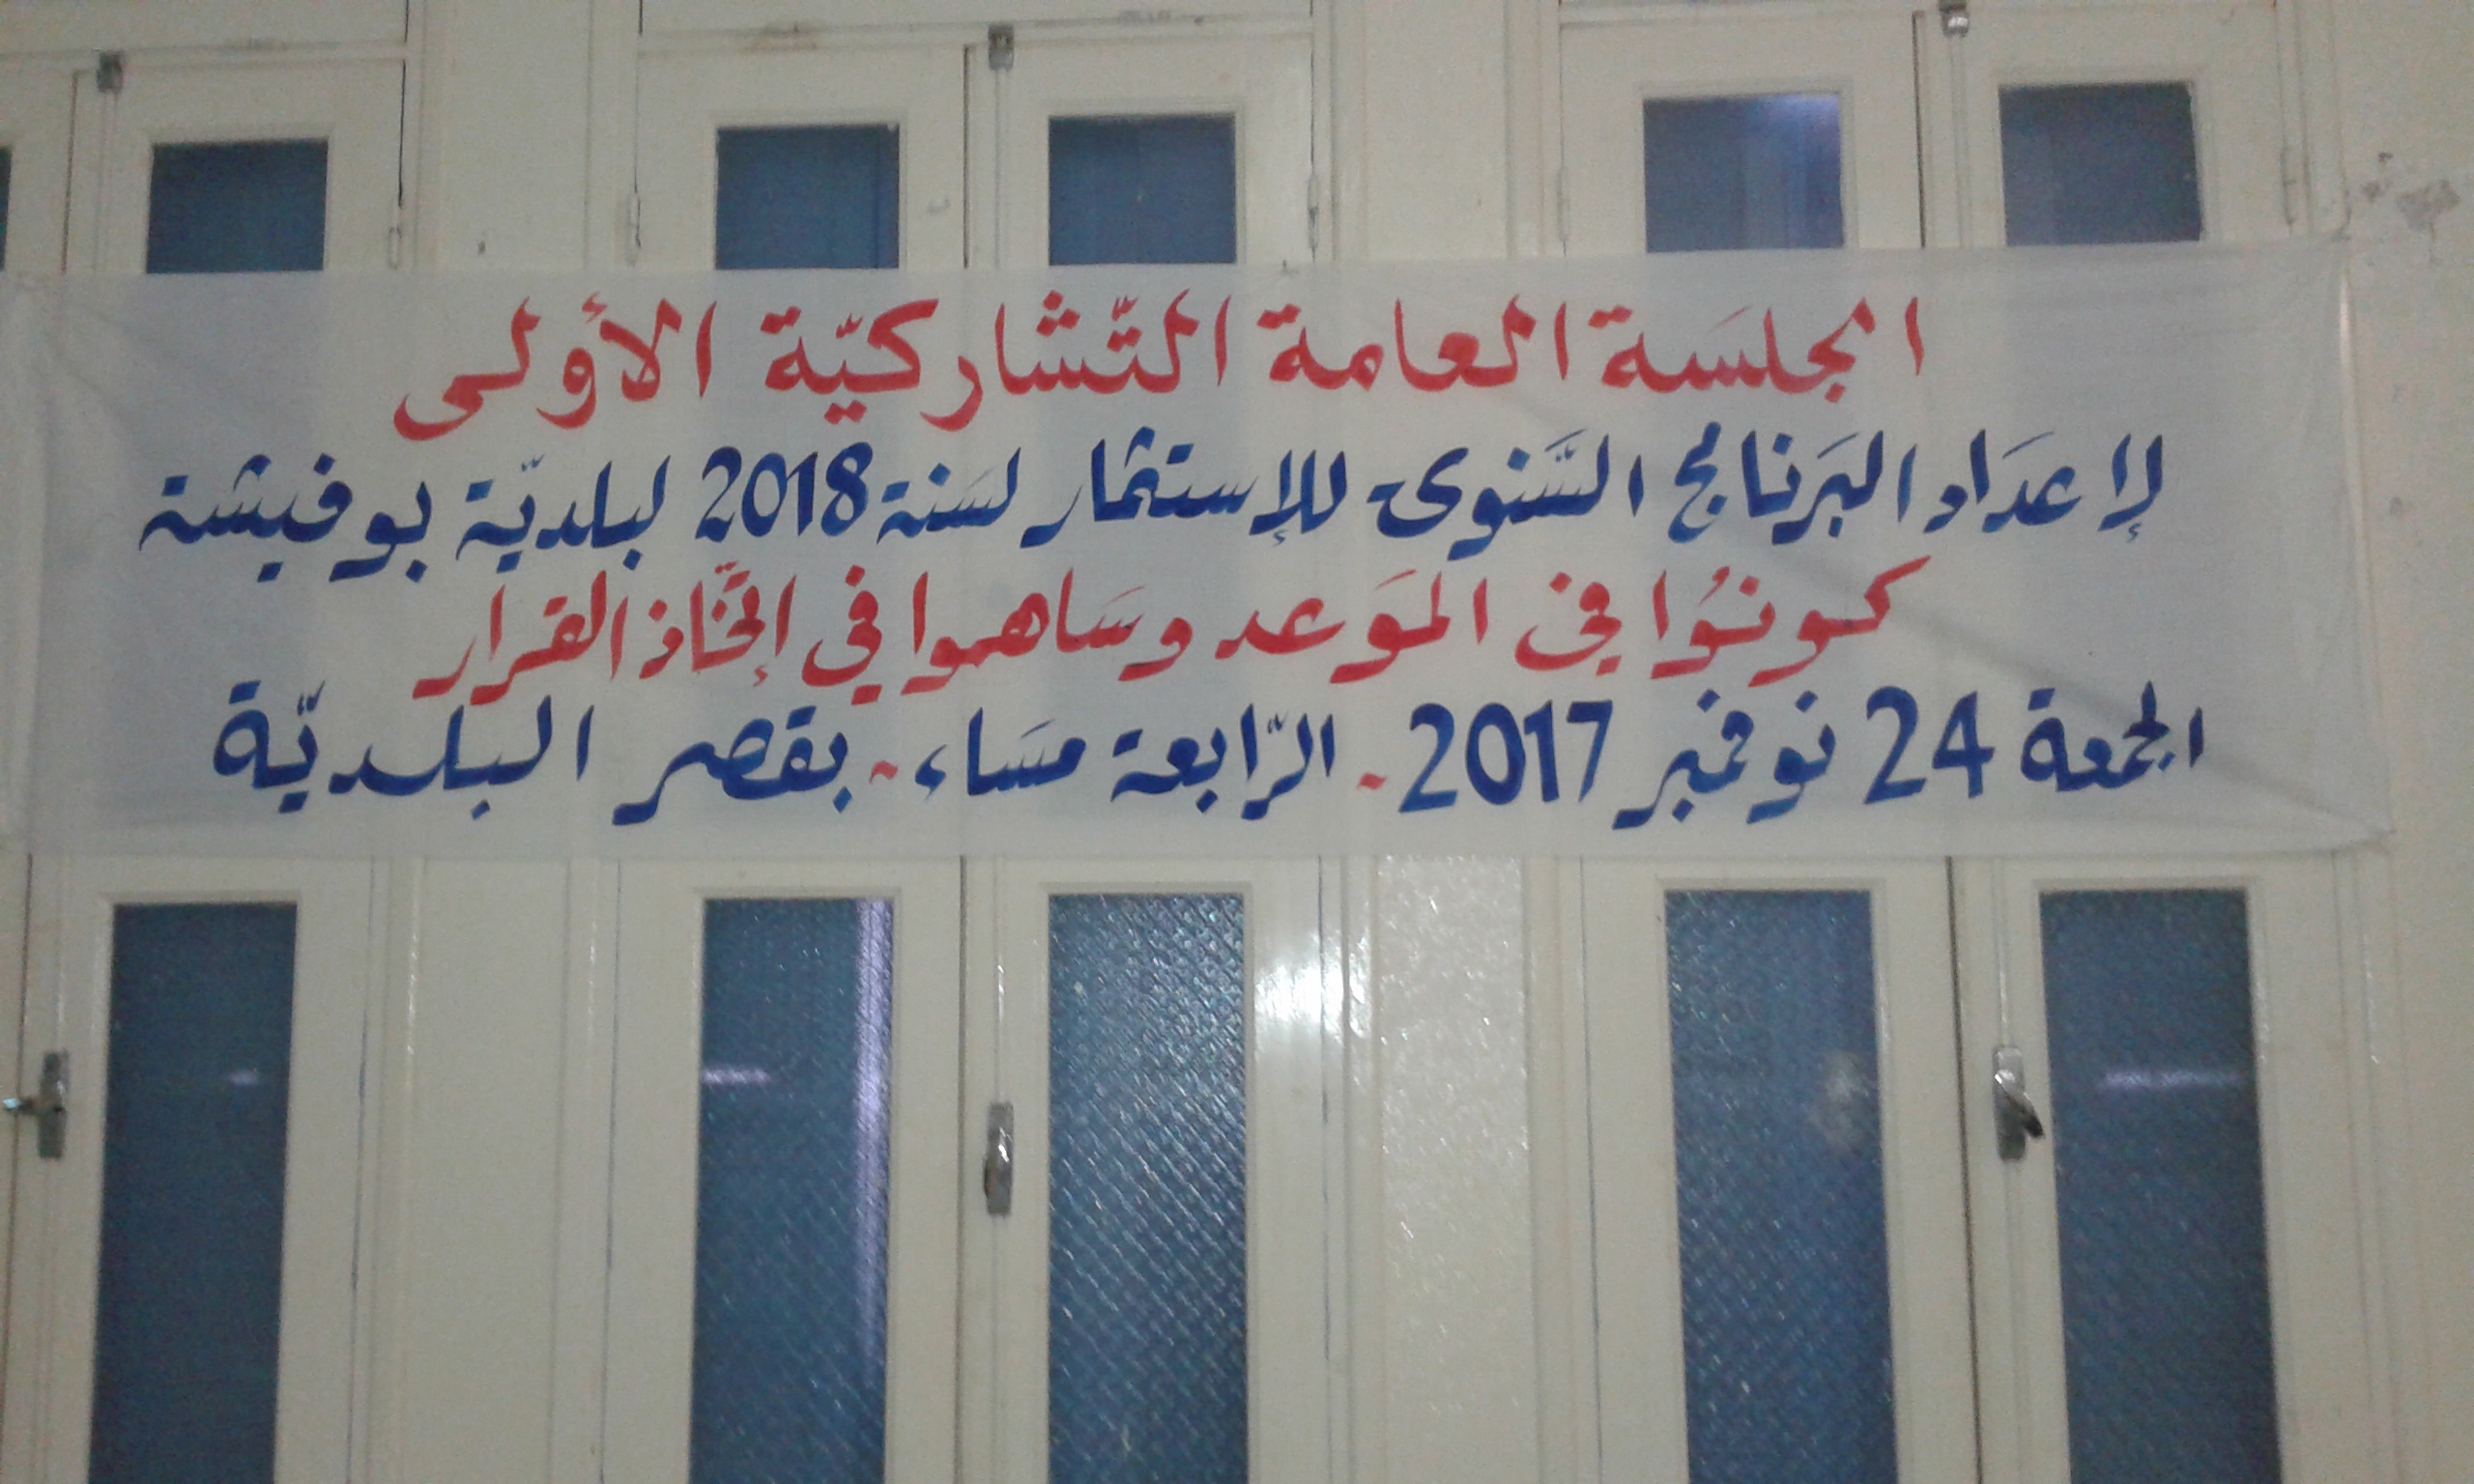 الجلسَة العامة التّشاركيّة الأولى
لإعدَاد البَرنامج السَّنوي للإستثمار لسَنة 2018 لبلديّة بوفيشة
كونُوا في الموَعد وسَاهموا في إتّخاذ القرار
الجمعة 24 نوفمبر 2017 - الرّابعة مسَاء - بقصر البلديّة